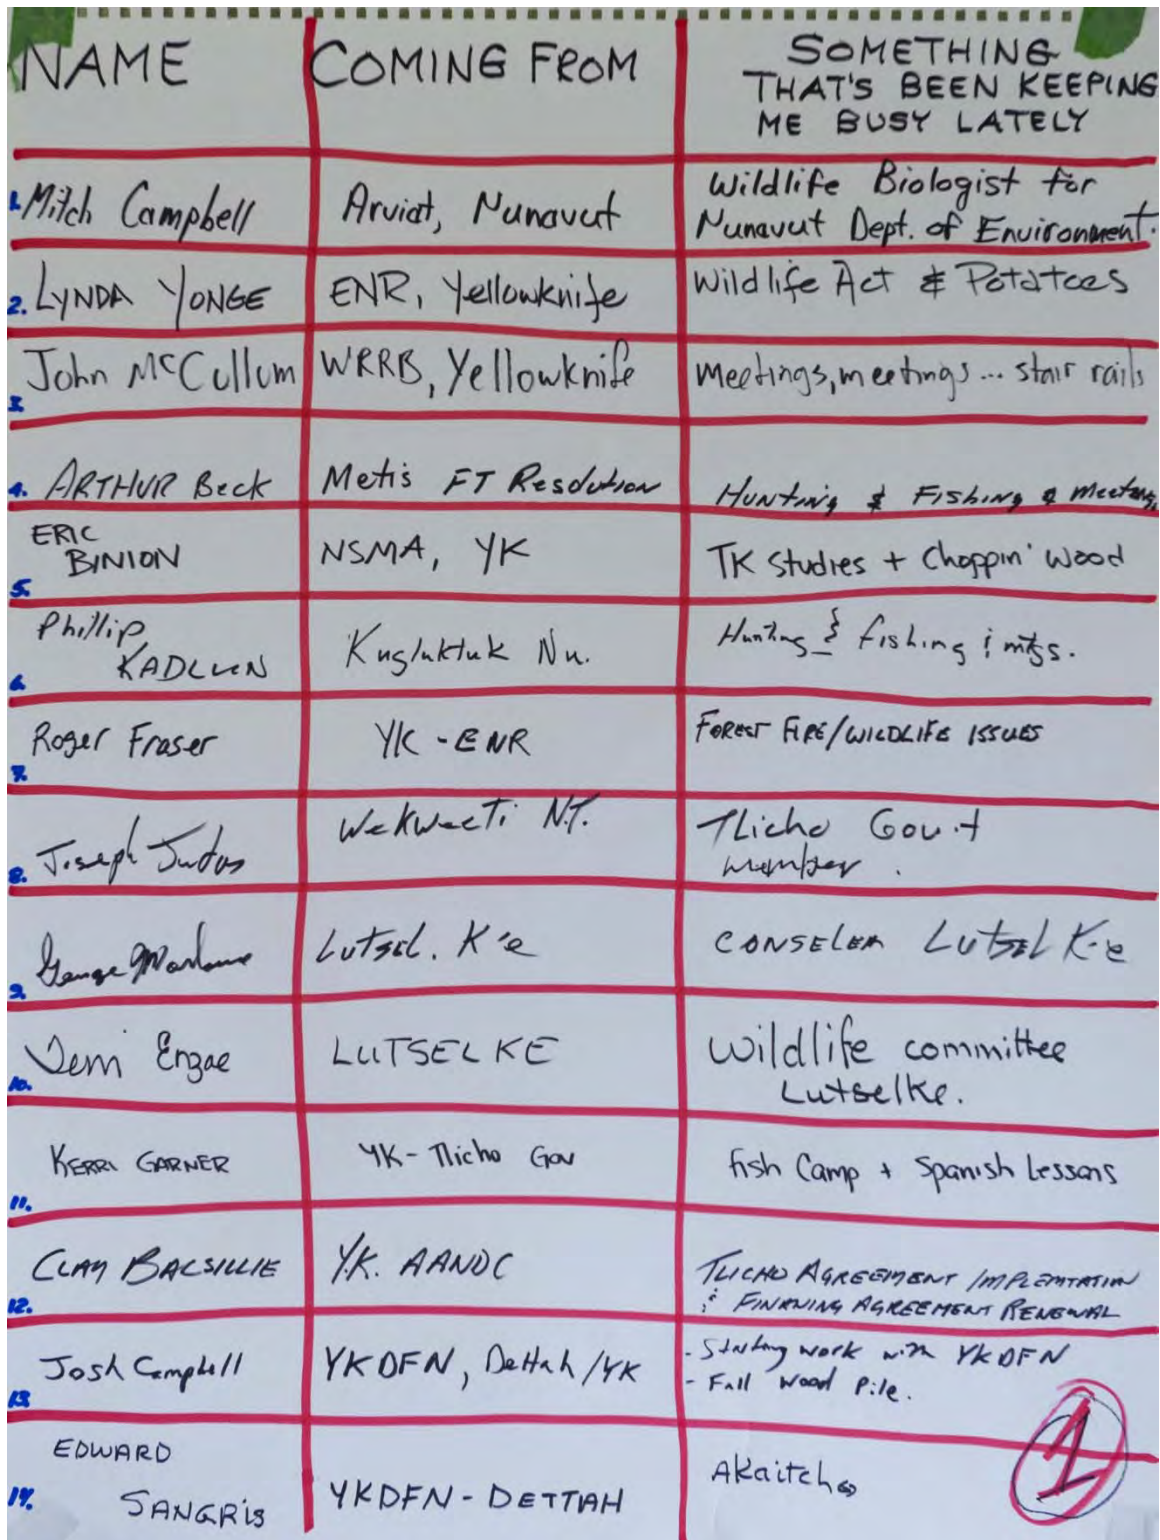 NAME COMING FROM SOMETHING
THAT'S BEEN KEEPING
ME BUSY LATELY
1. Mitch Campbell Arviat, Nunavut Wildlife Biologist for
Nunavut Dept. of Environment.
2. LYNDA YONGE ENR, Yellowknife Wildlife Act & Potatoes
3. John McCullum WRRB, Yellowknife meetings, meetings... stair rails
4. ARTHUR Beck Metis FT Resolution Hunting & Fishing & meetings
5. ERIC
BINION NSMA, YK TK studies + Choppin' Wood
6. Phillip
KADLUN Kugluktuk Nu. Hunting & fishing & mtgs.
7. Roger Fraser YK - ENR FOREST FIRE/WILDLIFE ISSUES
8. Joseph Judas Wekweeti N.T. Tlicho Gov't
member.
9. George Marlowe Lutsel. K'e CONSELER LUTSEL K'e
10. Jerri Enzoe LUTSEL KE Wildlife committee
Lutselke.
11. KERRI GARNER YK - Tlicho Gov fish Camp + Spanish Lessons
12. CLAY BALSILLIE Y.K. AANDC TLICHO AGREEMENT IMPLEMTATION
& FINANING AGREEMENT RENEWAL
13. Josh Campbell YKDFN, Dettah/YK - Starting work with YKDFN
- Fall wood pile.
14. EDWARD
SANGRIS YKDFN - DETTAH AKaitcho
1